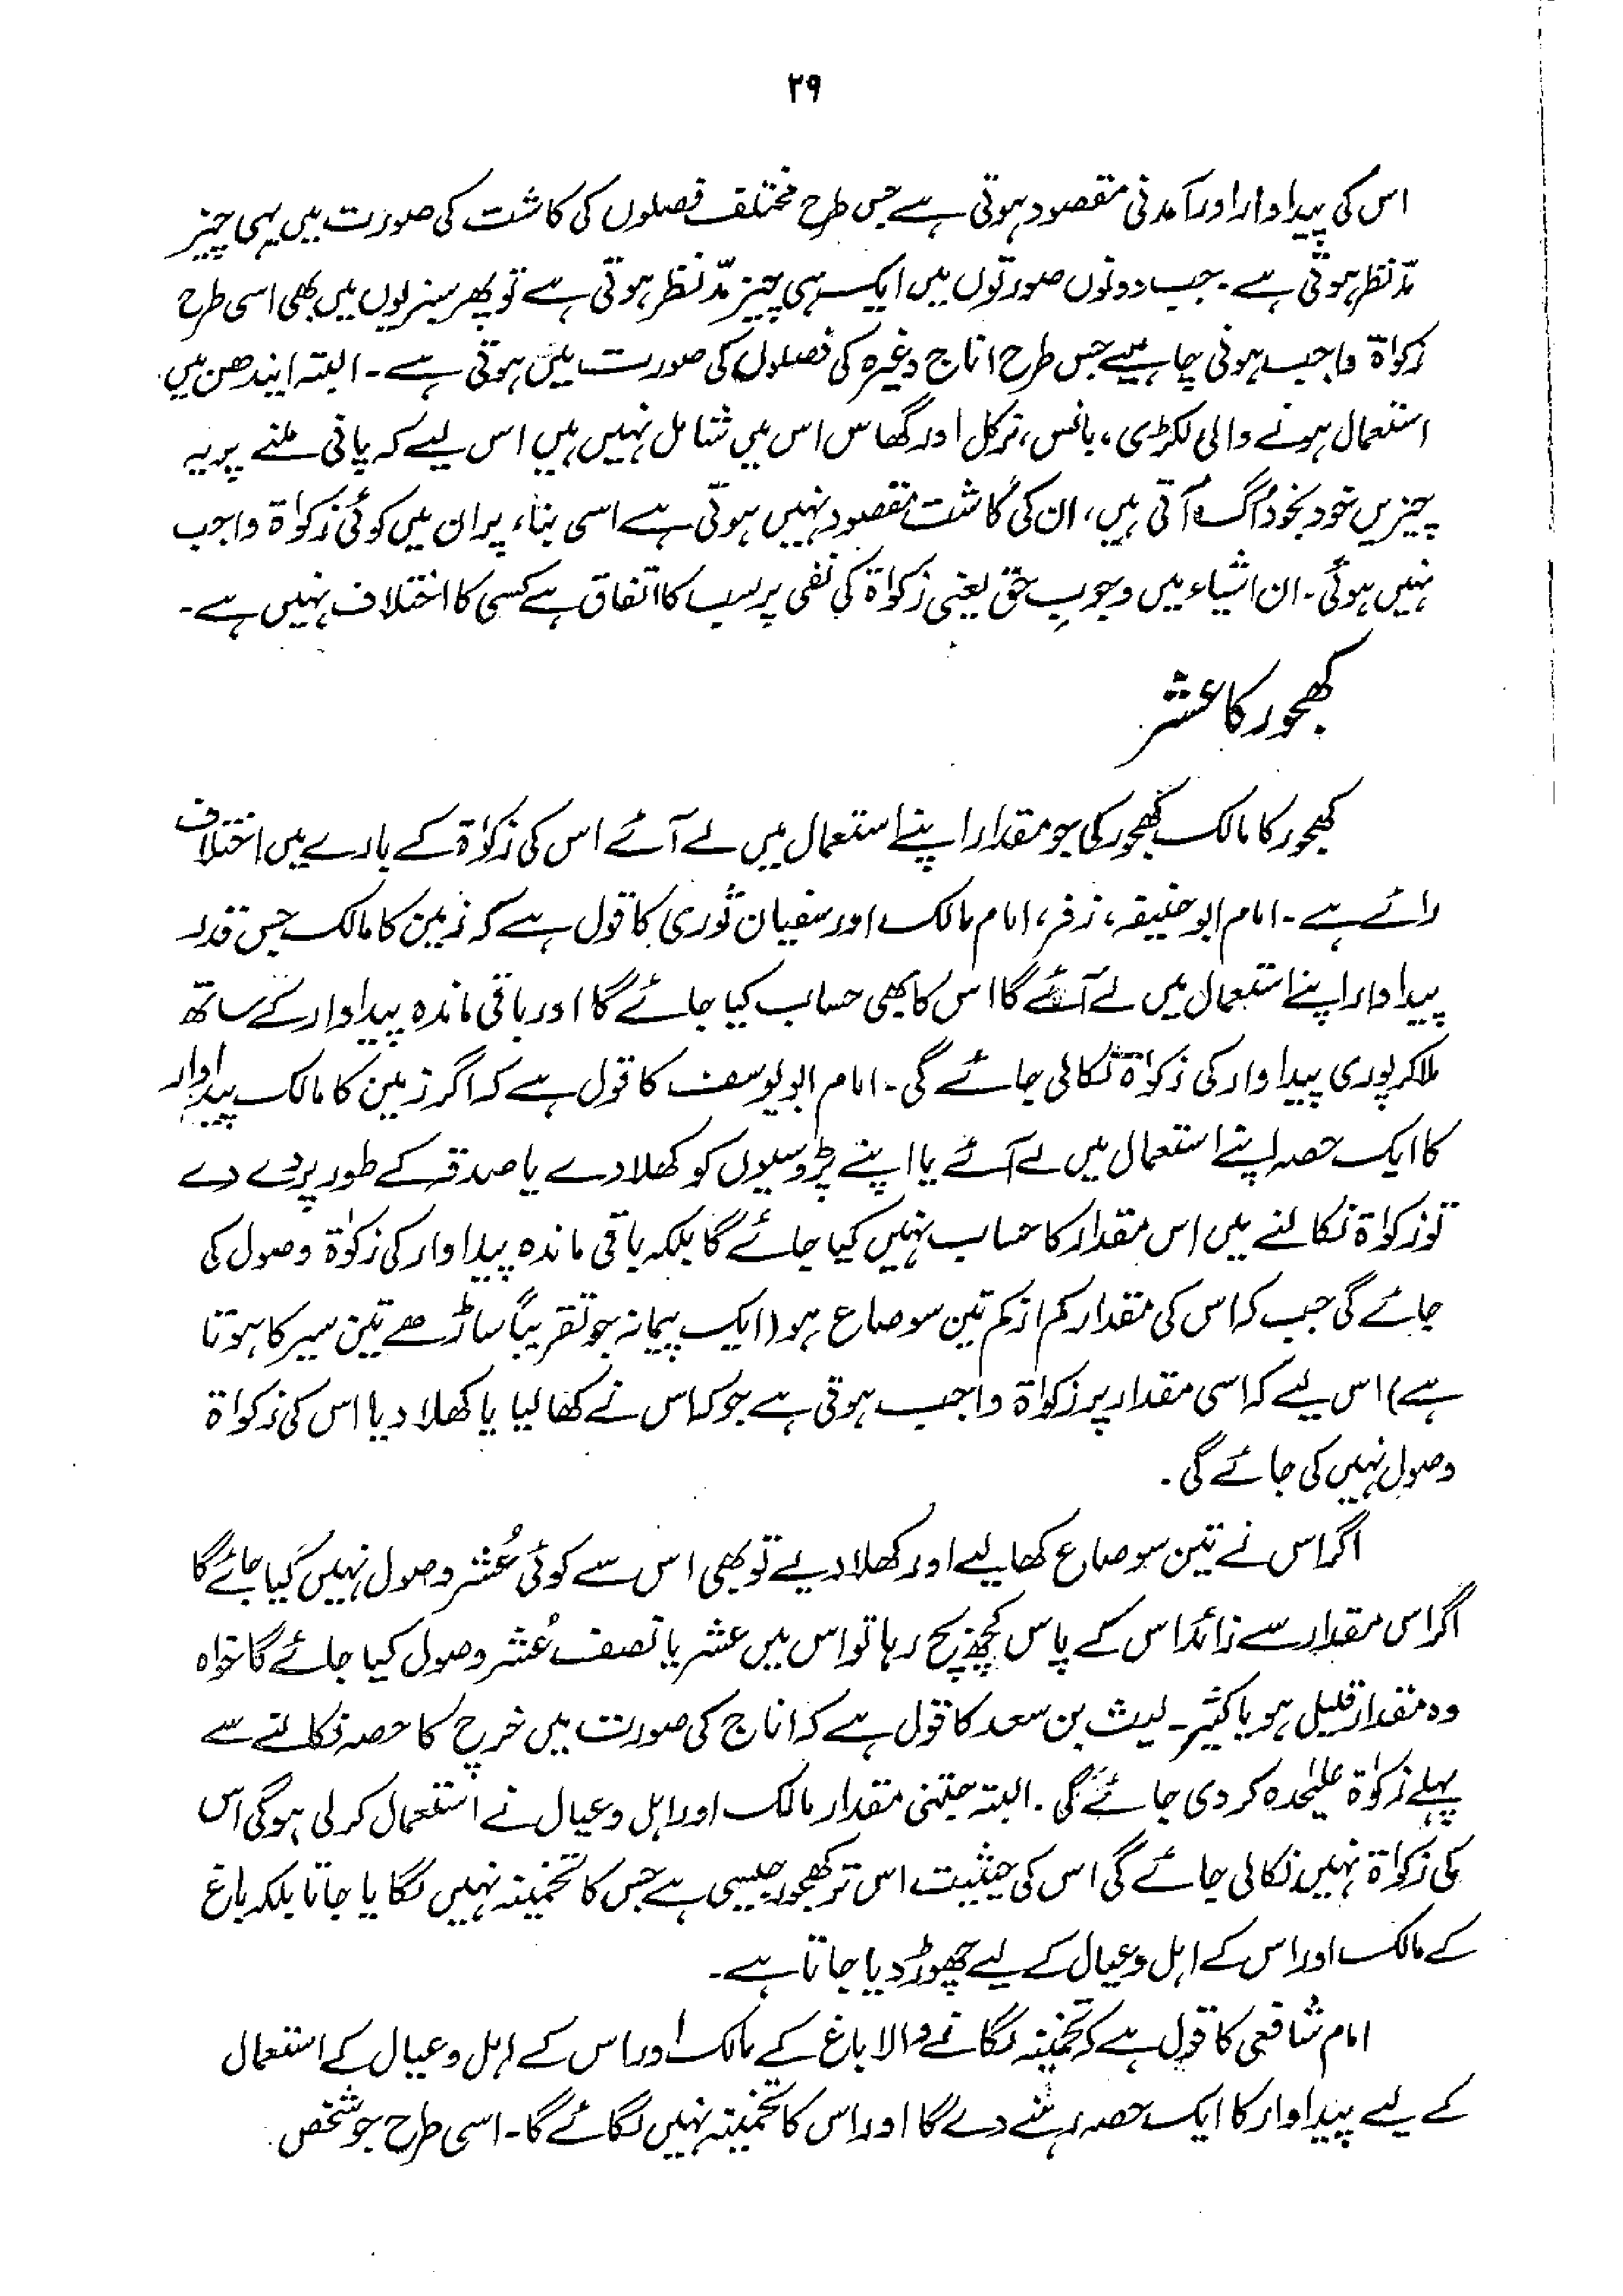 ۲۹
اس کی پیداوار اور آمدنی مقصود ہوتی ہے جس طرح مختلف فصلوں کی کاشت کی صورت میں یہی چیز
مدّ نظر ہوتی ہے۔ جب دونوں صورتوں میں ایک ہی چیز مدّ نظر ہوتی ہے تو پھر سبزیوں میں بھی اسی طرح
زکواۃ واجب ہونی چاہیے جس طرح اناج وغیرہ کی فصلوں کی صورت میں ہوتی ہے۔ البتہ ایندھن میں
استعمال ہونے والی لکڑی، بانس، نرکل اور گھاس اس میں شامل نہیں ہیں اس لیے کہ پانی ملنے پر یہ
چیزیں خود بخود اُگ آتی ہیں، ان کی کاشت مقصود نہیں ہوتی ہے اسی بناء پر ان میں کوئی زکواۃ واجب
نہیں ہوگی۔ ان اشیاء میں وجوبِ حق یعنی زکواۃ کی نفی پر سب کا اتفاق ہے کسی کا اختلاف نہیں ہے۔
کھجور کا عشر
کھجور کا مالک کھجور کی جو مقدار اپنے استعمال میں لے آئے اس کی زکوٰۃ کے بارے میں اختلاف
رائے ہے۔ امام ابو حنیفہ، زفر، امام مالک اور سفیان ثوری کا قول ہے کہ زمین کا مالک جس قدر
پیداوار اپنے استعمال میں لے آئے گا اس کا بھی حساب کیا جائے گا اور باقی ماندہ پیداوار کے ساتھ
ملا کر پوری پیداوار کی زکواۃ نکالی جائے گی۔ امام ابو یوسف کا قول ہے کہ اگر زمین کا مالک پیداوار
کا ایک حصہ اپنے استعمال میں لے آئے یا اپنے پڑوسیوں کو کھلا دے یا صدقہ کے طور پر دے دے
تو زکواۃ نکالنے میں اس مقدار کا حساب نہیں کیا جائے گا بلکہ باقی ماندہ پیداوار کی زکوٰۃ وصول کی
جائے گی جب کہ اس کی مقدار کم از کم تین سو صاع ہو (ایک پیمانہ جو تقریباً ساڑھے تین سیر کا ہوتا
ہے) اس لیے کہ اسی مقدار پر زکواۃ واجب ہوتی ہے جو کہ اس نے کھا لیا یا کھلا دیا اس کی زکواۃ
وصول نہیں کی جائے گی۔
اگر اس نے تین سو صاع کھا لیے اور کھلا دیے تو بھی اس سے کوئی عُشر وصول نہیں کیا جائے گا
اگر اس مقدار سے زائد اس کے پاس کچھ بچ رہا تو اس میں عشر یا نصف عُشر وصول کیا جائے گا خواہ
وہ مقدار قلیل ہو یا کثیر۔ لیث بن سعد کا قول ہے کہ اناج کی صورت میں خرچ کا حصہ نکالنے سے
پہلے زکوٰۃ علیٰحدہ کر دی جائے گی۔ البتہ جتنی مقدار مالک اور اہل و عیال نے استعمال کر لی ہوگی اس
کی زکواۃ نہیں نکالی جائے گی اس کی حیثیت اس تر کھجور جیسی ہے جس کا تخمینہ نہیں لگایا جاتا بلکہ باغ
کے مالک اور اس کے اہل و عیال کے لیے چھوڑ دیا جاتا ہے۔
امام شافعی کا قول ہے کہ تخمینہ لگانے والا باغ کے مالک اور اس کے اہل و عیال کے استعمال
کے لیے پیداوار کا ایک حصہ رہنے دے گا اور اس کا تخمینہ نہیں لگائے گا۔ اسی طرح جو شخص